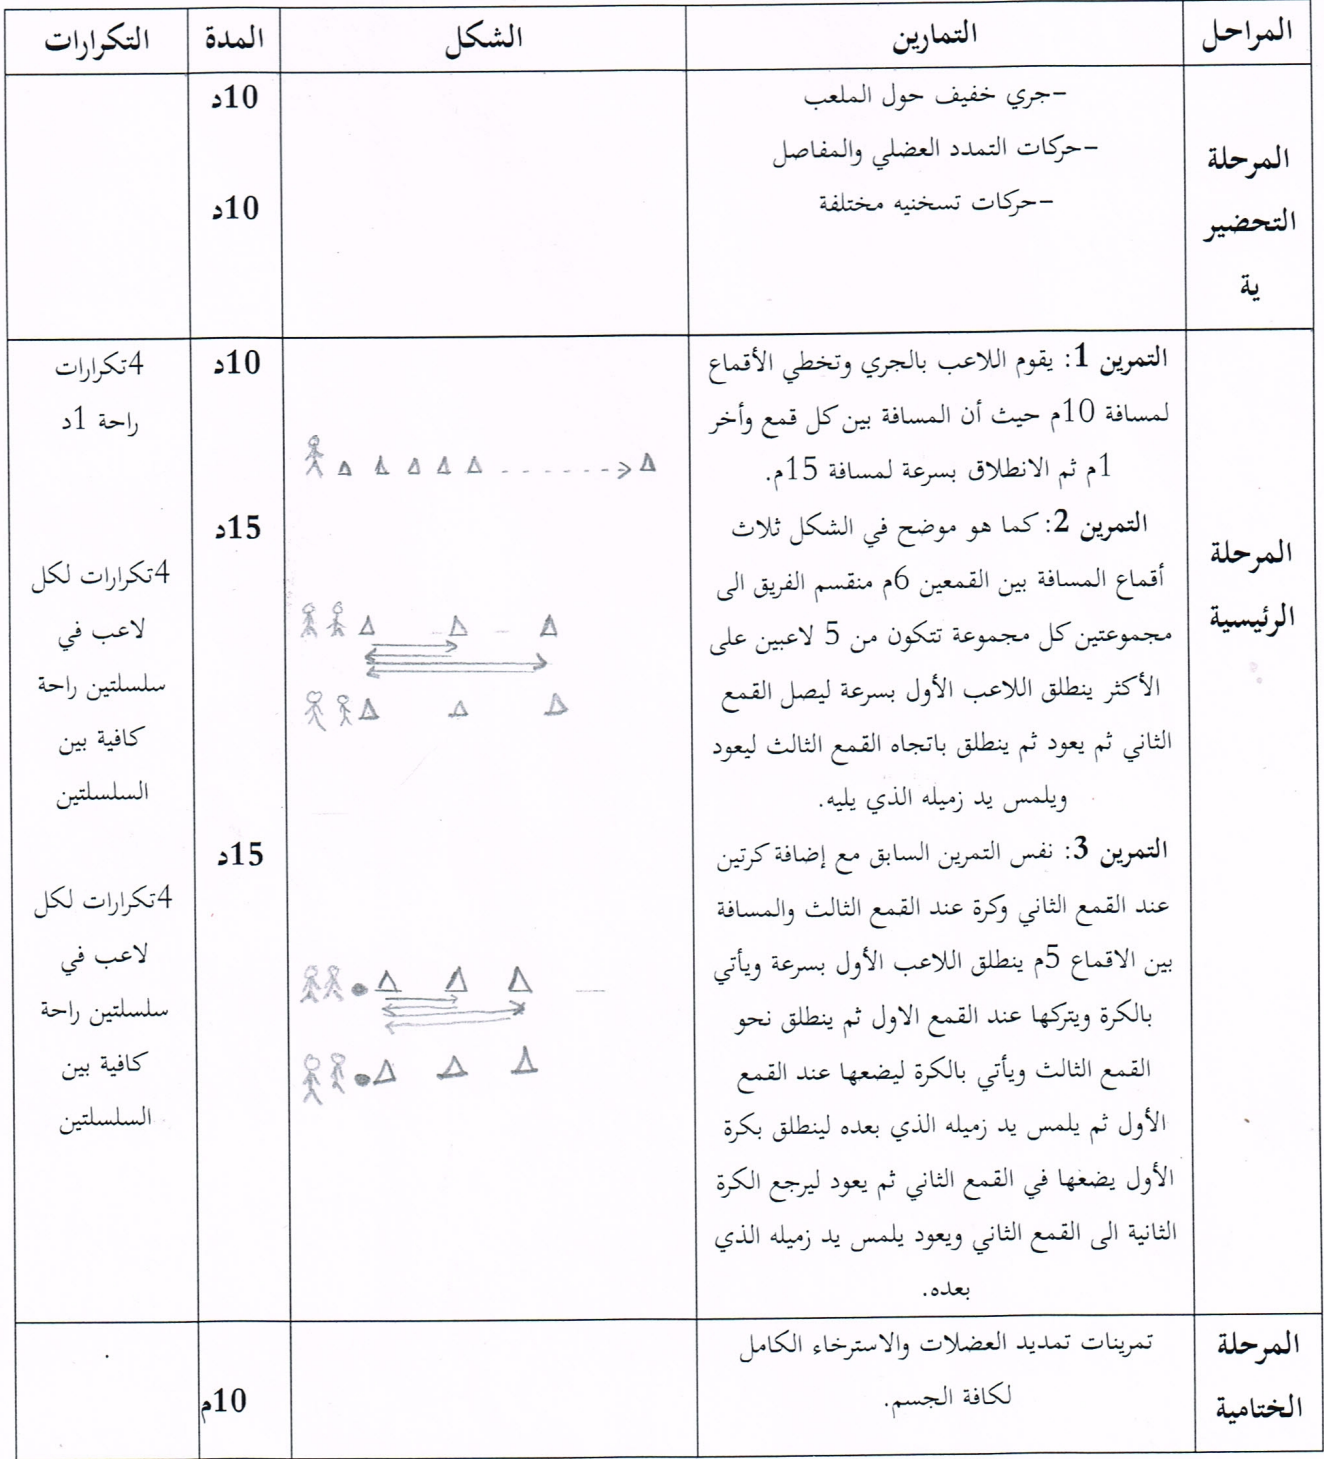 المراحل التمارين الشكل المدة التكرارات
المرحلة
التحضير
ية
-جري خفيف حول الملعب
-حركات التمدد العضلي والمفاصل
-حركات تسخنيه مختلفة
10د
10د
المرحلة
الرئيسية
التمرين 1: يقوم اللاعب بالجري وتخطي الأقماع
لمسافة 10م حيث أن المسافة بين كل قمع وأخر
1م ثم الانطلاق بسرعة لمسافة 15م.
التمرين 2: كما هو موضح في الشكل ثلاث
أقماع المسافة بين القمعين 6م منقسم الفريق الى
مجموعتين كل مجموعة تتكون من 5 لاعبين على
الأكثر ينطلق اللاعب الأول بسرعة ليصل القمع
الثاني ثم يعود ثم ينطلق باتجاه القمع الثالث ليعود
ويلمس يد زميله الذي يليه.
التمرين 3: نفس التمرين السابق مع إضافة كرتين
عند القمع الثاني وكرة عند القمع الثالث والمسافة
بين الاقماع 5م ينطلق اللاعب الأول بسرعة ويأتي
بالكرة ويتركها عند القمع الاول ثم ينطلق نحو
القمع الثالث ويأتي بالكرة ليضعها عند القمع
الأول ثم يلمس يد زميله الذي بعده لينطلق بكرة
الأول يضعها في القمع الثاني ثم يعود ليرجع الكرة
الثانية الى القمع الثاني ويعود يلمس يد زميله الذي
بعده.
10د
15د
15د
4تكرارات
راحة 1د
4تكرارات لكل
لاعب في
سلسلتين راحة
كافية بين
السلسلتين
4تكرارات لكل
لاعب في
سلسلتين راحة
كافية بين
السلسلتين
المرحلة
الختامية
تمرينات تمديد العضلات والاسترخاء الكامل
لكافة الجسم.
10م